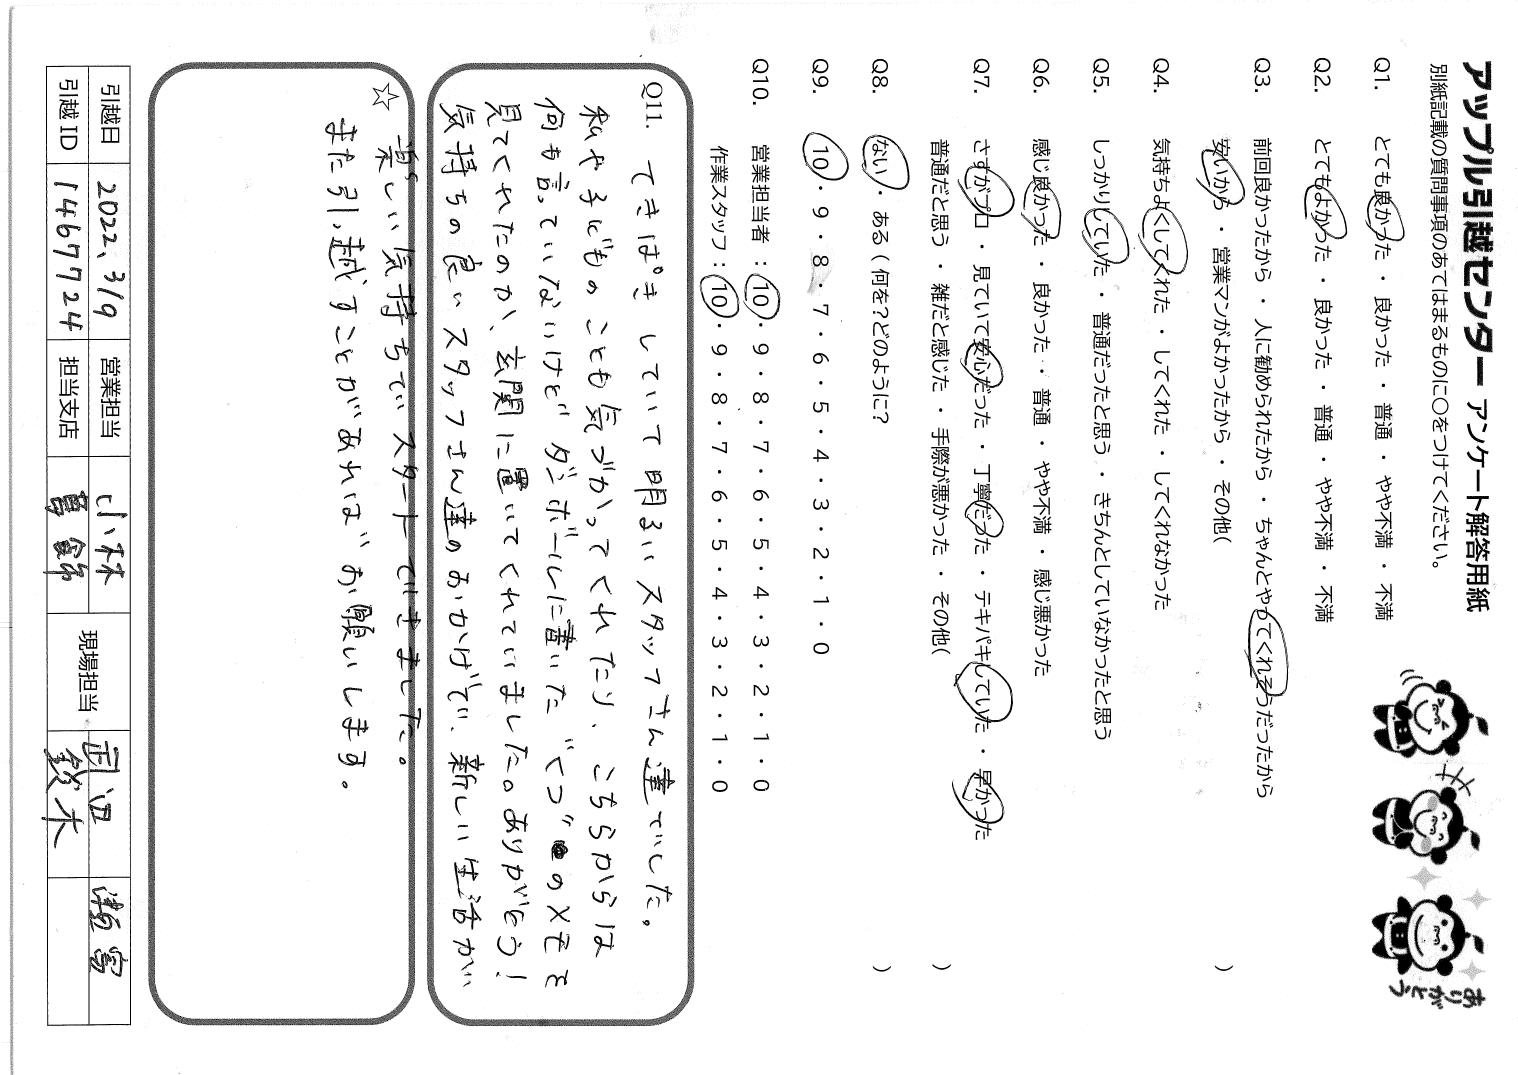 アップル引越センター アンケート解答用紙
別紙記載の質問事項のあてはまるものに○をつけてください。
Q1. とても良かった ・ 良かった ・ 普通 ・ やや不満 ・ 不満
Q2. とてもよかった ・ 良かった ・ 普通 ・ やや不満 ・ 不満
Q3. 前回良かったから ・ 人に勧められたから ・ ちゃんとやってくれそうだったから
安いから ・ 営業マンがよかったから ・ その他( )
Q4. 気持ちよくしてくれた ・ してくれた ・ してくれなかった
Q5. しっかりしていた ・ 普通だったと思う ・ きちんとしていなかったと思う
Q6. 感じ良かった ・ 良かった ・ 普通 ・ やや不満 ・ 感じ悪かった
Q7. さすがプロ ・ 見ていて安心だった ・ 丁寧だった ・ テキパキしていた ・ 早かった
普通だと思う ・ 雑だと感じた ・ 手際が悪かった ・ その他( )
Q8. ない ・ ある ( 何を?どのように? )
Q9. 10 ・ 9 ・ 8 ・ 7 ・ 6 ・ 5 ・ 4 ・ 3 ・ 2 ・ 1 ・ 0
Q10. 営業担当者 : 10 ・ 9 ・ 8 ・ 7 ・ 6 ・ 5 ・ 4 ・ 3 ・ 2 ・ 1 ・ 0
作業スタッフ : 10 ・ 9 ・ 8 ・ 7 ・ 6 ・ 5 ・ 4 ・ 3 ・ 2 ・ 1 ・ 0
Q11. てきぱきしていて明るいスタッフさん達でした。
私や子どものことも気づかってくれたり、こちらからは
何も言っていないけどダンボールに書いた"くつ"のメモを
見てくれたのか、玄関に置いてくれていました。ありがとう!
気持ちの良いスタッフさん達のおかげで、新しい生活が
☆ 楽しい気持ちでスタートできました。
また引っ越すことがあればお願いします。
引越日 2022, 3/9 営業担当 小林 現場担当
引越ID 1467724 担当支店 鈴木
ありがとう